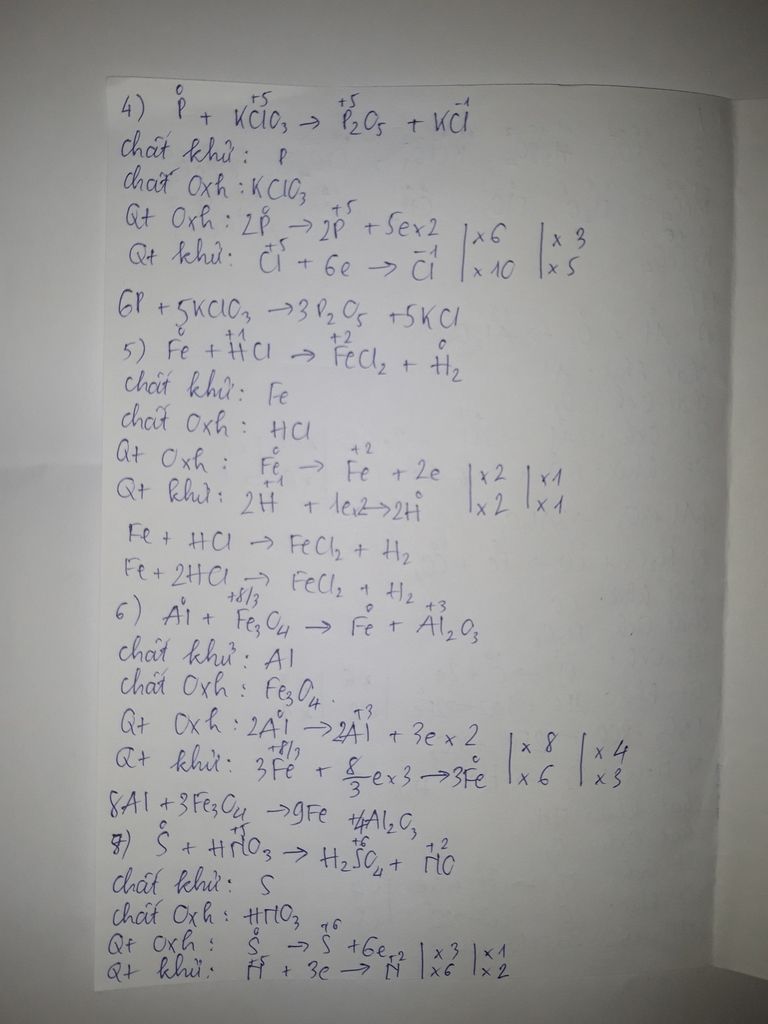 4) P⁰ + KCl⁺⁵O₃ → P₂⁺⁵O₅ + KCl⁻¹
chất khử: P
chất Oxh: KClO₃
Qt Oxh: 2P⁰ → 2P⁺⁵ + 5e x 2 | x 6 | x 3
Qt khử: Cl⁺⁵ + 6e → Cl⁻¹ | x 10 | x 5
6P + 5KClO₃ → 3P₂O₅ + 5KCl
5) Fe⁰ + H⁺¹Cl → Fe⁺²Cl₂ + H₂⁰
chất khử: Fe
chất Oxh: HCl
Qt Oxh: Fe⁰ → Fe⁺² + 2e | x 2 | x 1
Qt khử: 2H⁺¹ + 1e.2 → 2H⁰ | x 2 | x 1
Fe + HCl → FeCl₂ + H₂
Fe + 2HCl → FeCl₂ + H₂
6) Al⁰ + Fe₃⁺⁸/³O₄ → Fe⁰ + Al₂⁺³O₃
chất khử: Al
chất Oxh: Fe₃O₄.
Qt Oxh: 2Al⁰ → 2Al⁺³ + 3e x 2 | x 8 | x 4
Qt khử: 3Fe⁺⁸/³ + 8/3 e x 3 → 3Fe⁰ | x 6 | x 3
8Al + 3Fe₃O₄ → 9Fe + 4Al₂O₃
7) S⁰ + HN⁺⁵O₃ → H₂S⁺⁶O₄ + N⁺²O
chất khử: S
chất Oxh: HNO₃
Qt Oxh: S⁰ → S⁺⁶ + 6e | x 3 | x 1
Qt khử: N⁺⁵ + 3e → N⁺² | x 6 | x 2